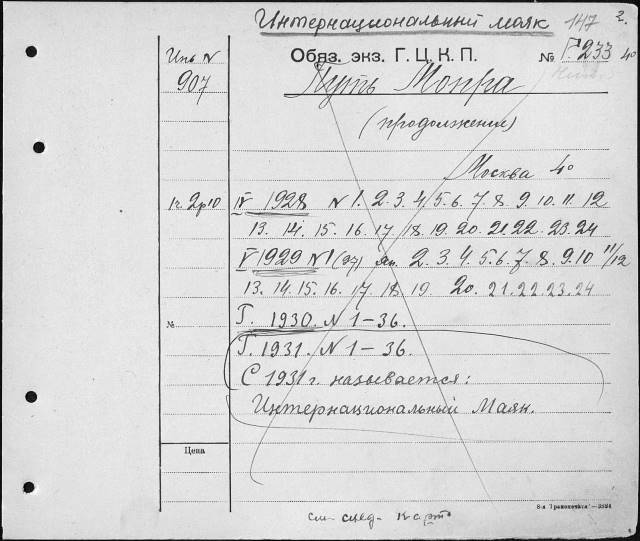 Интернациональный маяк 147 2.
Инв N Обяз. экз. Г. Ц. К. П. № Г 233 4º
907 Путь Мопра
(продолжение)
Москва 4º
1г. 2р10 IV 1928 N 1. 2. 3. 4. 5. 6. 7. 8. 9. 10. 11. 12
13. 14. 15. 16. 17. 18. 19. 20. 21. 22. 23. 24
V 1929 N 1 (97) Ян. 2. 3. 4. 5. 6. 7. 8. 9. 10 11/12
13. 14. 15. 16. 17. 18. 19. 20. 21. 22. 23. 24
№ Г. 1930. N 1–36.
Г. 1931. N 1–36.
С 1931 г. называется:
Интернациональный Маяк.
Цена
см. след. карт.